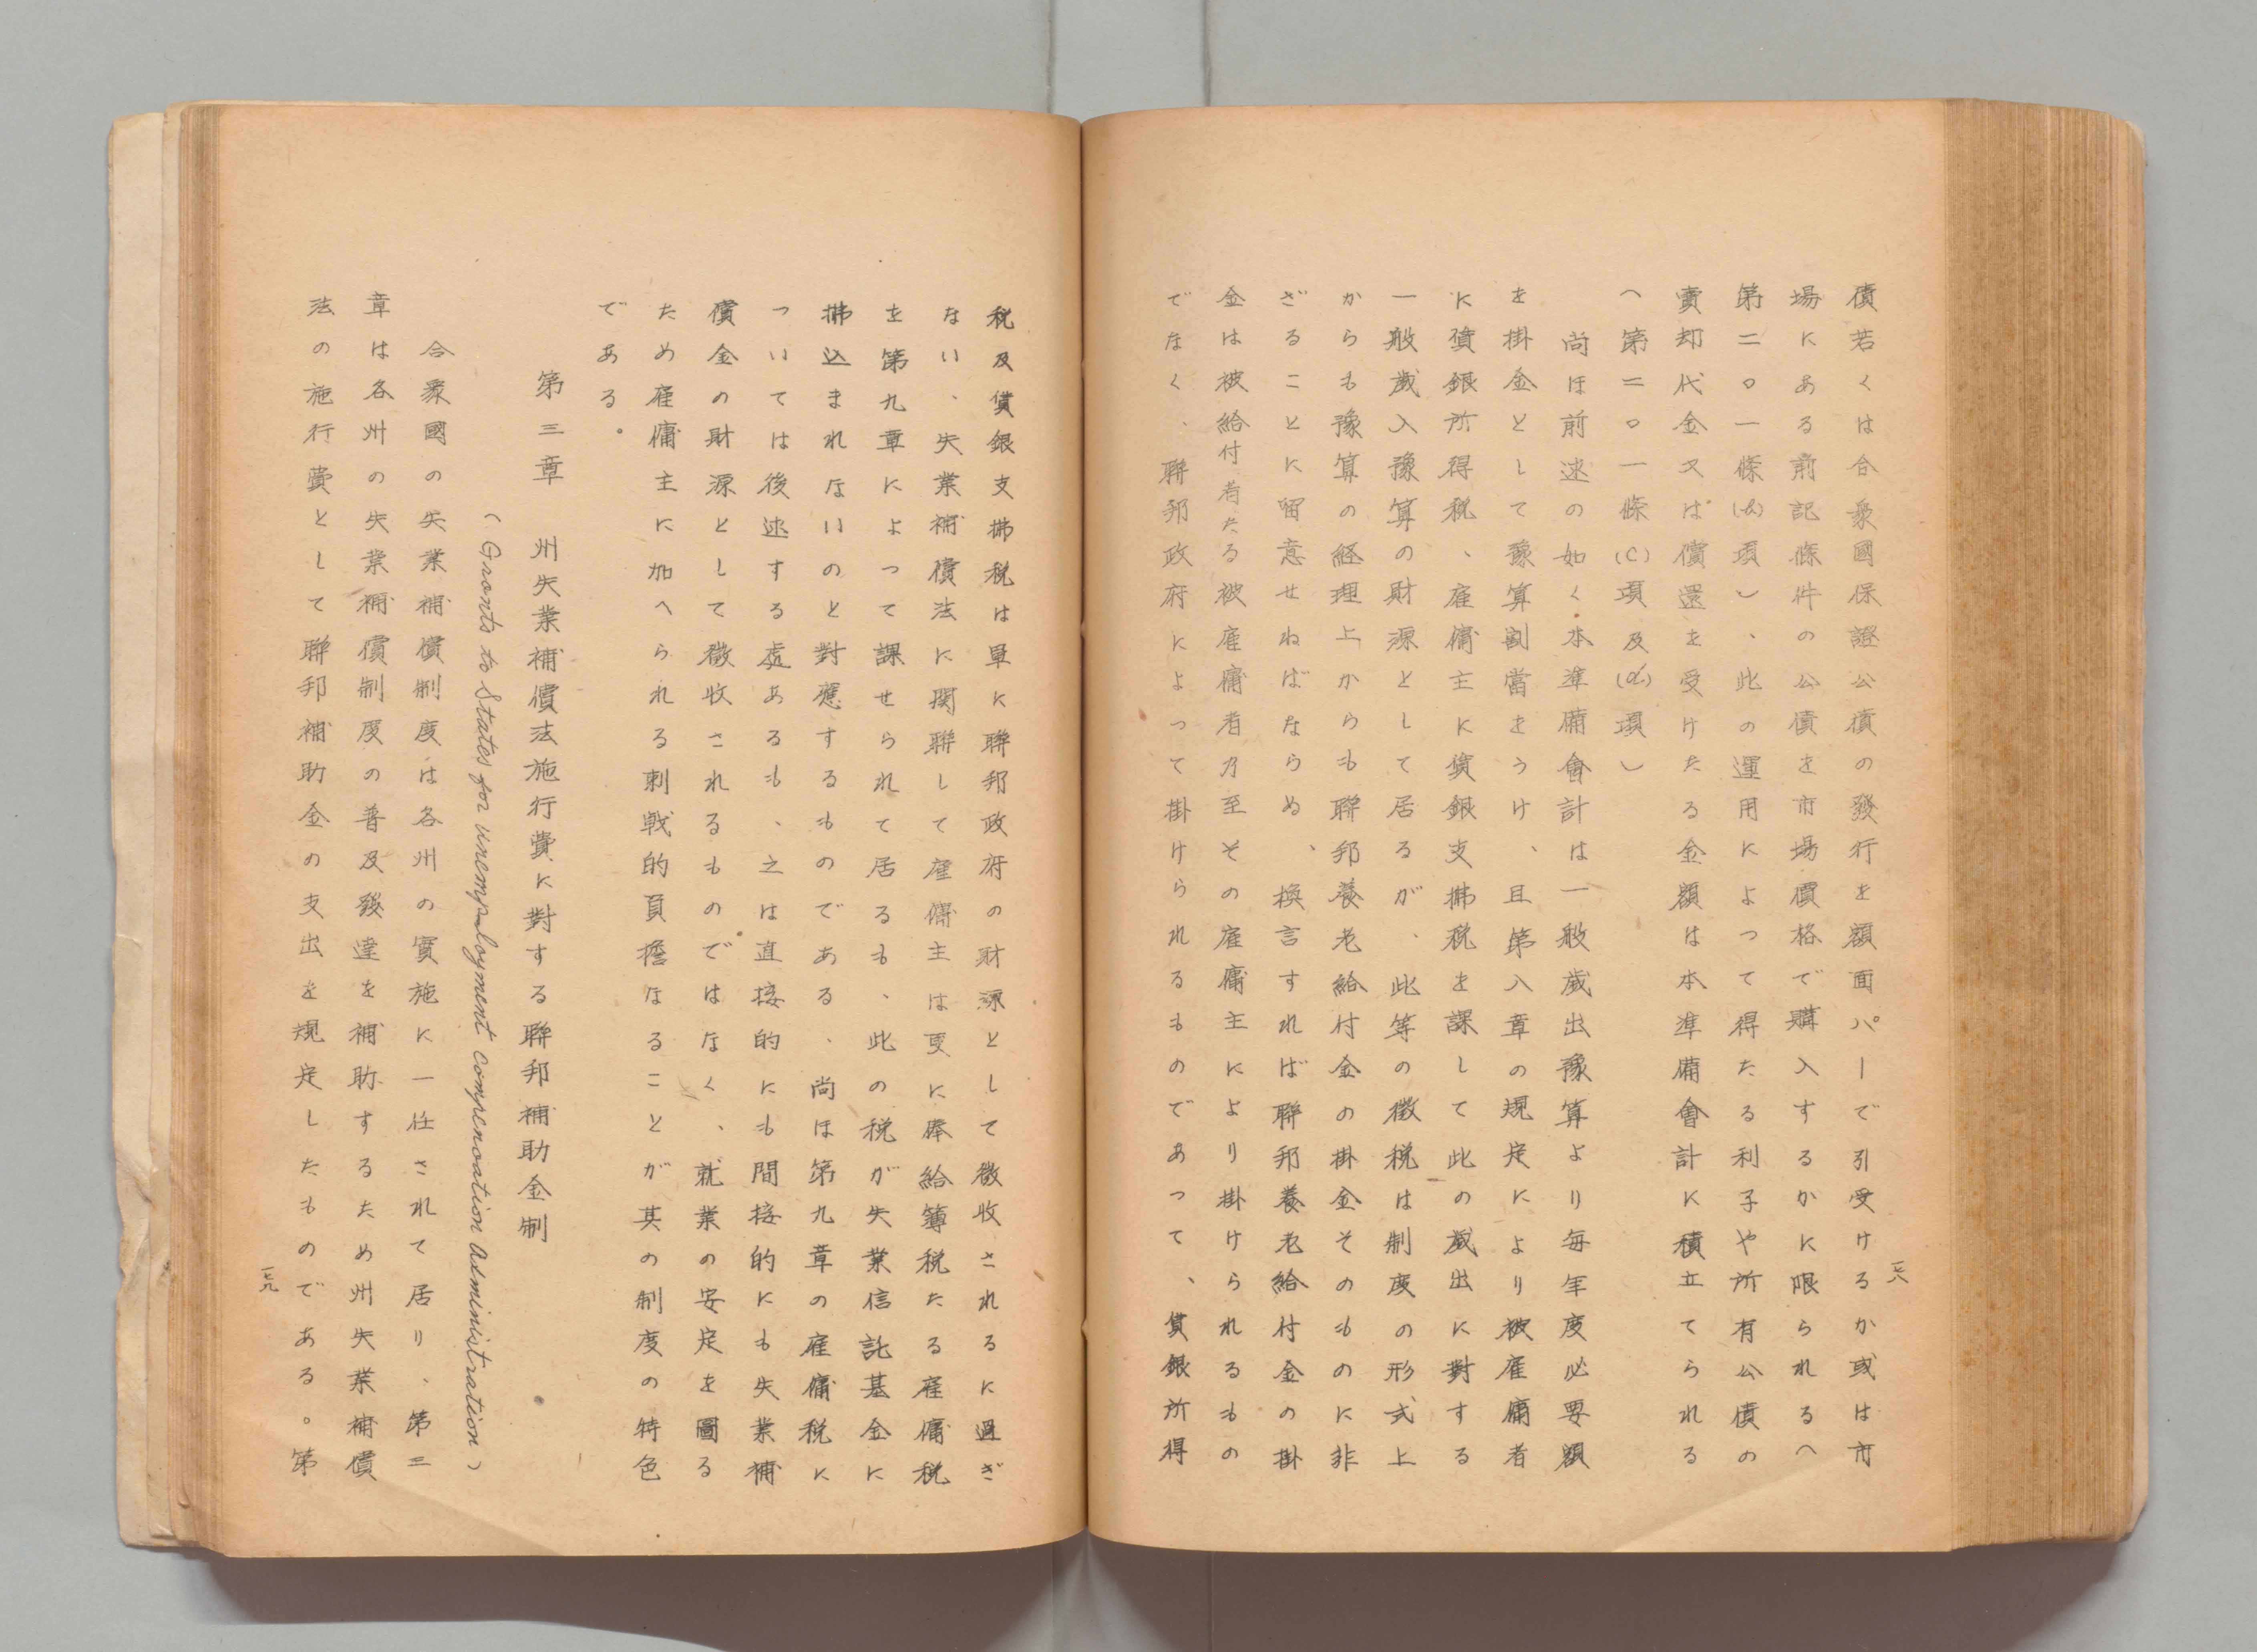 債若くは合衆國保證公債の發行を額面パーで引受けるか或は市
場にある前記條件の公債を市場價格で購入するかに限られる（
第二〇一條(b)項）、此の運用によって得たる利子や所有公債の
賣却代金又は償還を受けたる金額は本準備會計に積立てられる
（第二〇一條(c)項及(d)項）
尚ほ前述の如く本準備會計は一般歲出豫算より毎年度必要額
を掛金として豫算割當をうけ、且第八章の規定により被雇傭者
に賃銀所得税、雇傭主に賃銀支拂税を課して此の歲出に對する
一般歲入豫算の財源として居るが、此等の徴税は制度の形式上
からも豫算の経理上からも聯邦養老給付金の掛金そのものに非
ざることに留意せねばならぬ、換言すれば聯邦養老給付金の掛
金は被給付者たる被雇傭者乃至その雇傭主により掛けられるもの
でなく、聯邦政府によって掛けられるものであって、賃銀所得
一七八
税及賃銀支拂税は單に聯邦政府の財源として徴收されるに過ぎ
ない、失業補償法に関聯して雇傭主は更に俸給簿税たる雇傭税
を第九章によって課せられて居るも、此の税が失業信託基金に
拂込まれないのと對應するものである、尚ほ第九章の雇傭税に
ついては後述する處あるも、之は直接的にも間接的にも失業補
償金の財源として徴收されるものではなく、就業の安定を圖る
ため雇傭主に加へられる刺戟的負擔なることが其の制度の特色
である。
第三章　州失業補償法施行費に對する聯邦補助金制
（Grants to States for unemployment compensation administration）
合衆國の失業補償制度は各州の實施に一任されて居り、第三
章は各州の失業補償制度の普及發達を補助するため州失業補償
法の施行費として聯邦補助金の支出を規定したものである。第
一七九